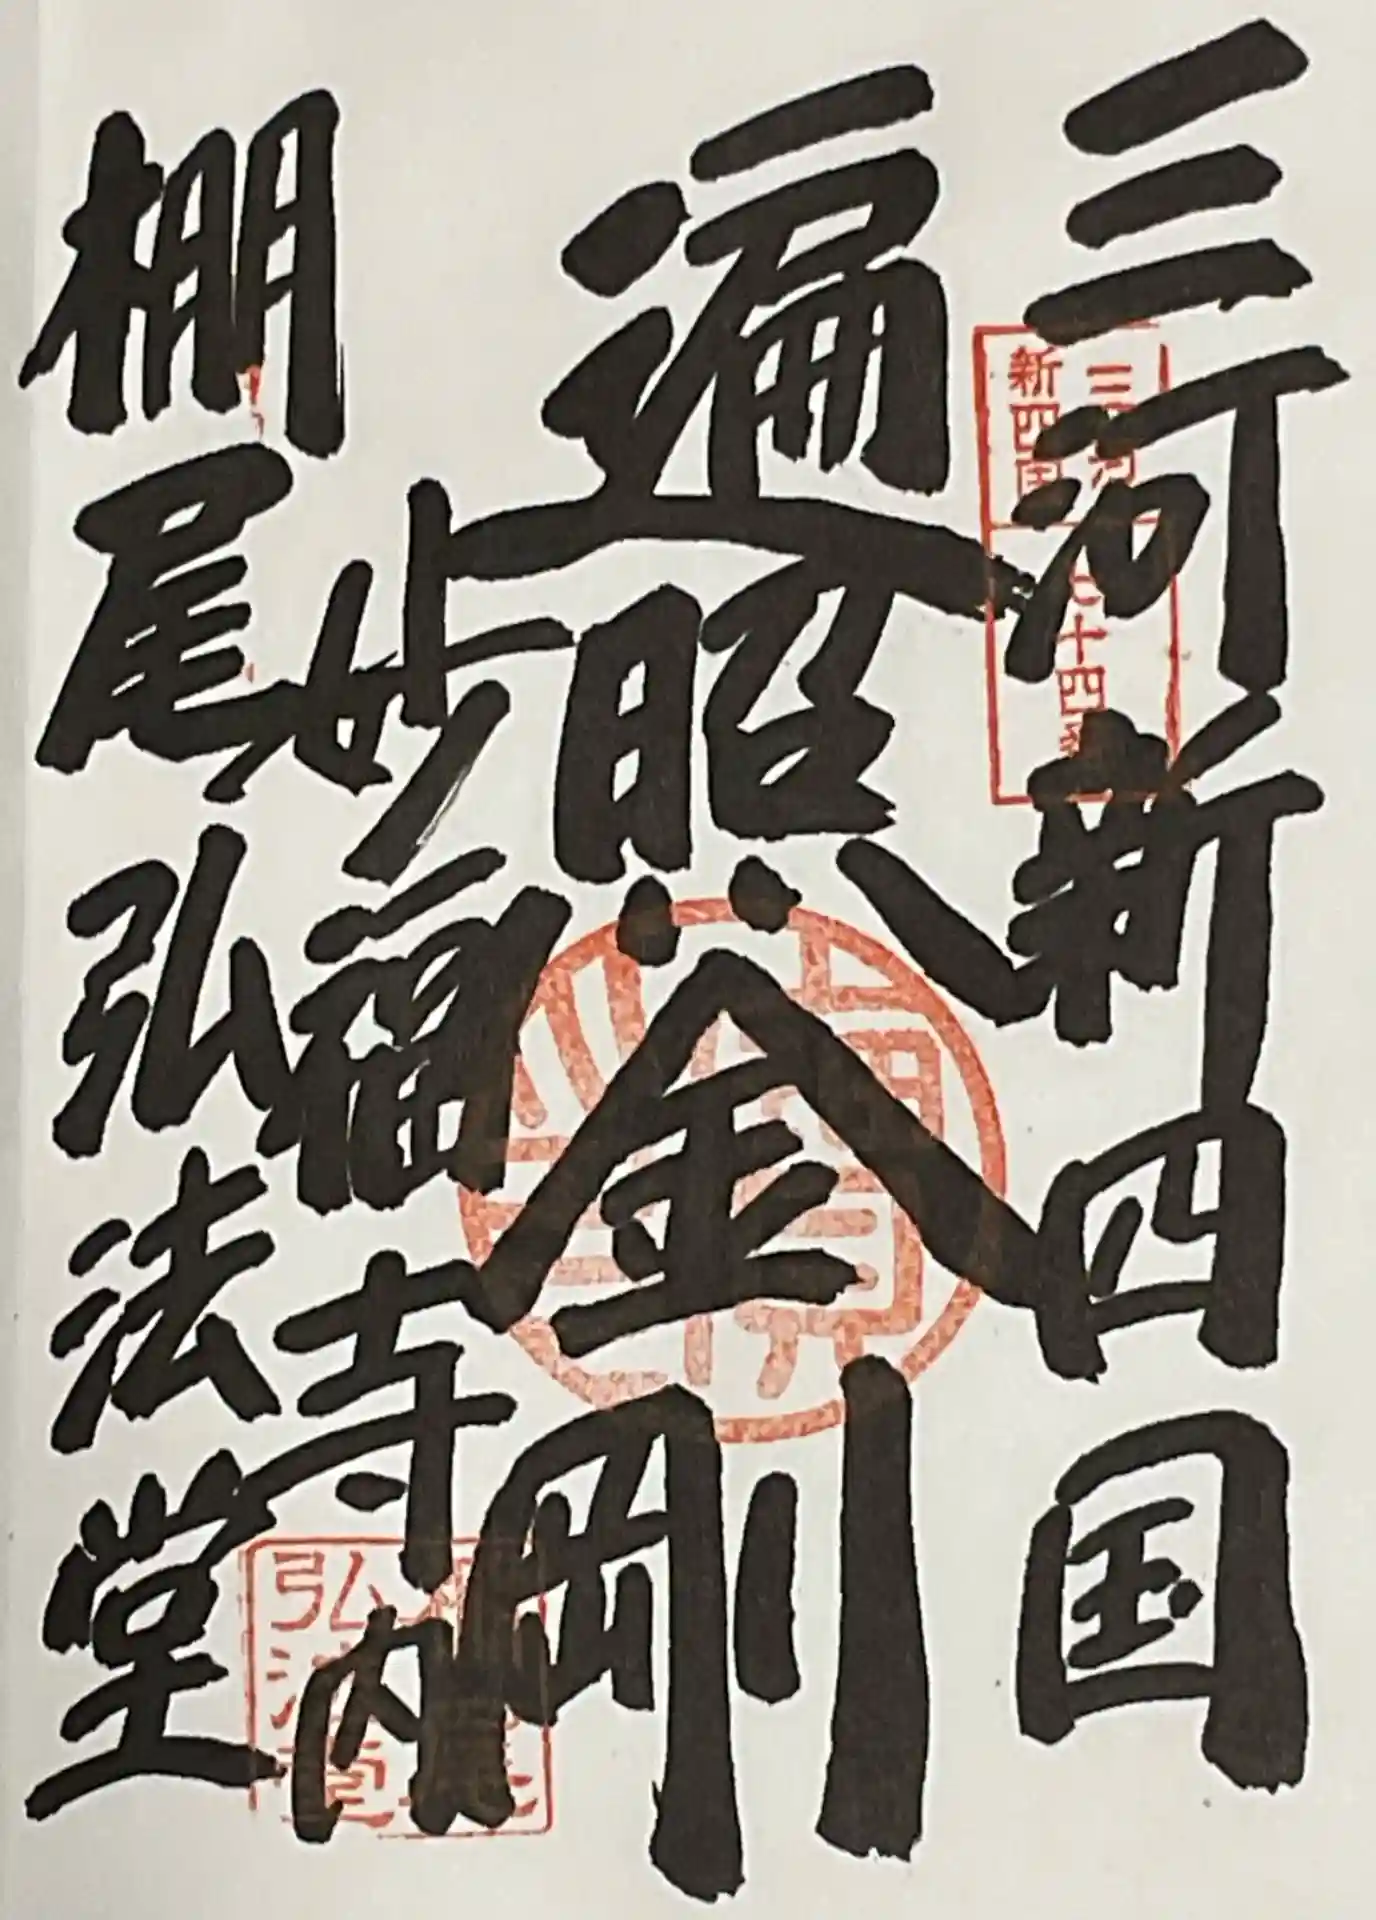 三河新四国
遍照金剛
妙福寺内
棚尾弘法堂
三河
新四国
七十四
弘法堂